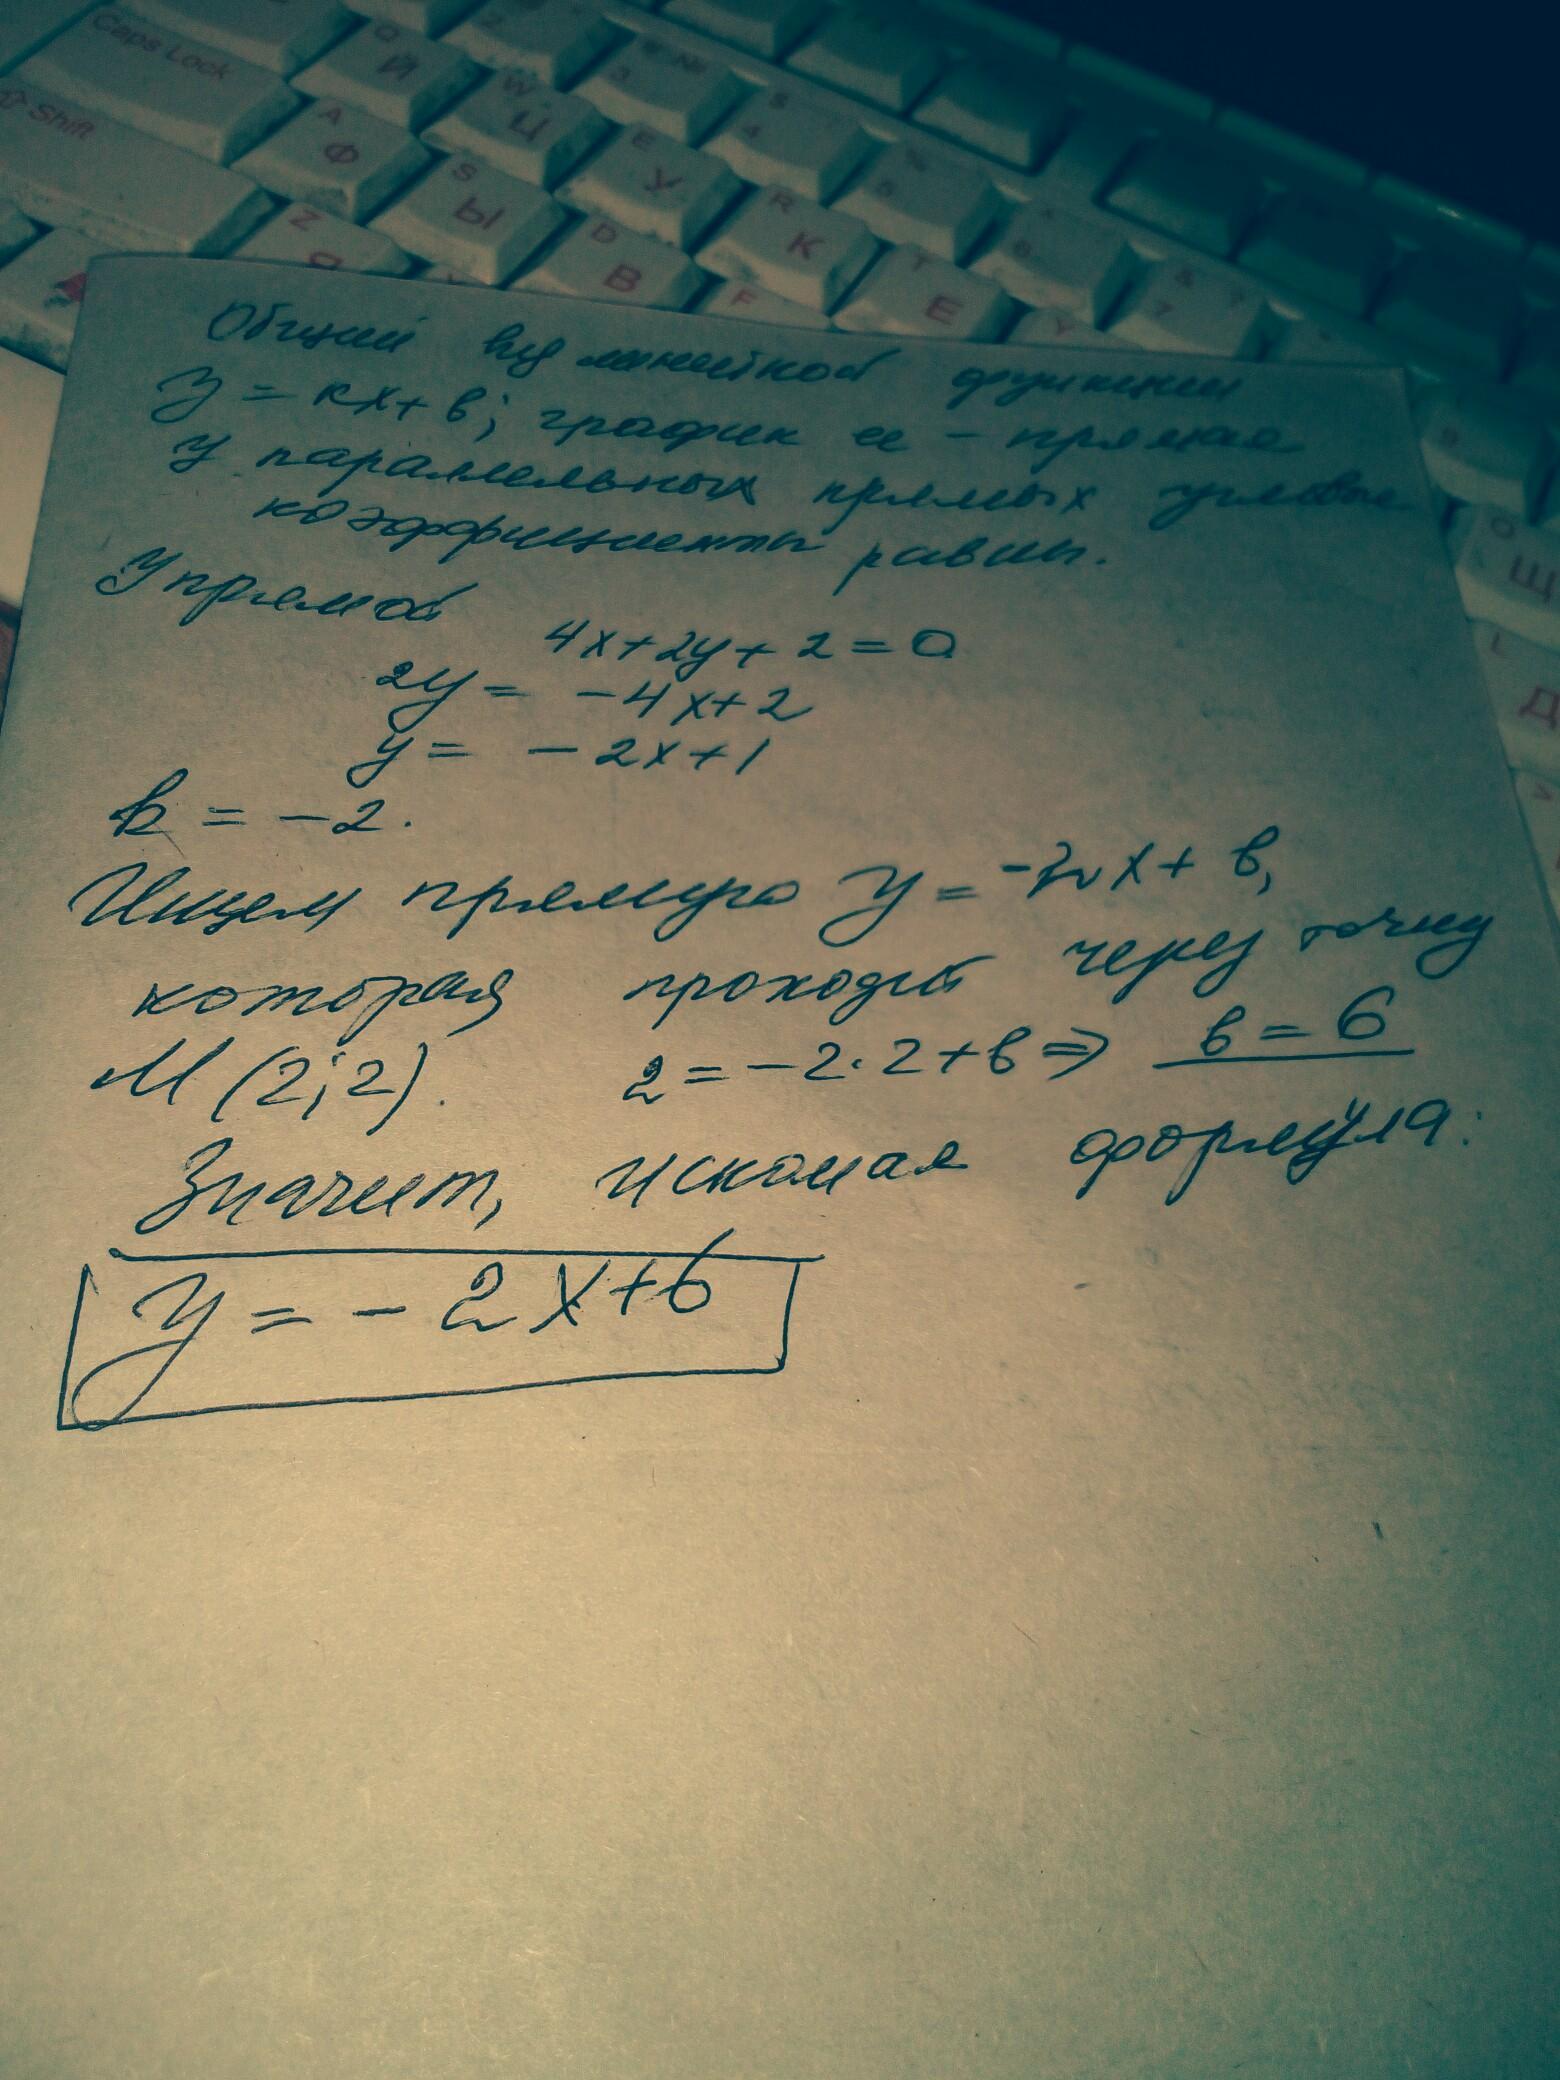 Caps Lock
Shift
Q Й
W Ц
E У
R К
T Е
Y
A Ф
S Ы
D В
F
Z Я
Щ
L Д
Общий вид линейной функции
y = kx + b; график ее - прямая
У параллельных прямых угловые
коэффициенты равны.
У прямой
4x + 2y + 2 = 0
2y = -4x + 2
y = -2x + 1
k = -2.
Ищем прямую y = -2x + b,
которая проходит через точку
M (2; 2). 2 = -2·2 + b ⇒ b = 6
Значит, искомая формула:
y = -2x + 6